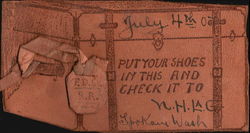 July 4th 08
PUT YOUR SHOES
IN THIS AND
CHECK IT TO
Spokane Wash